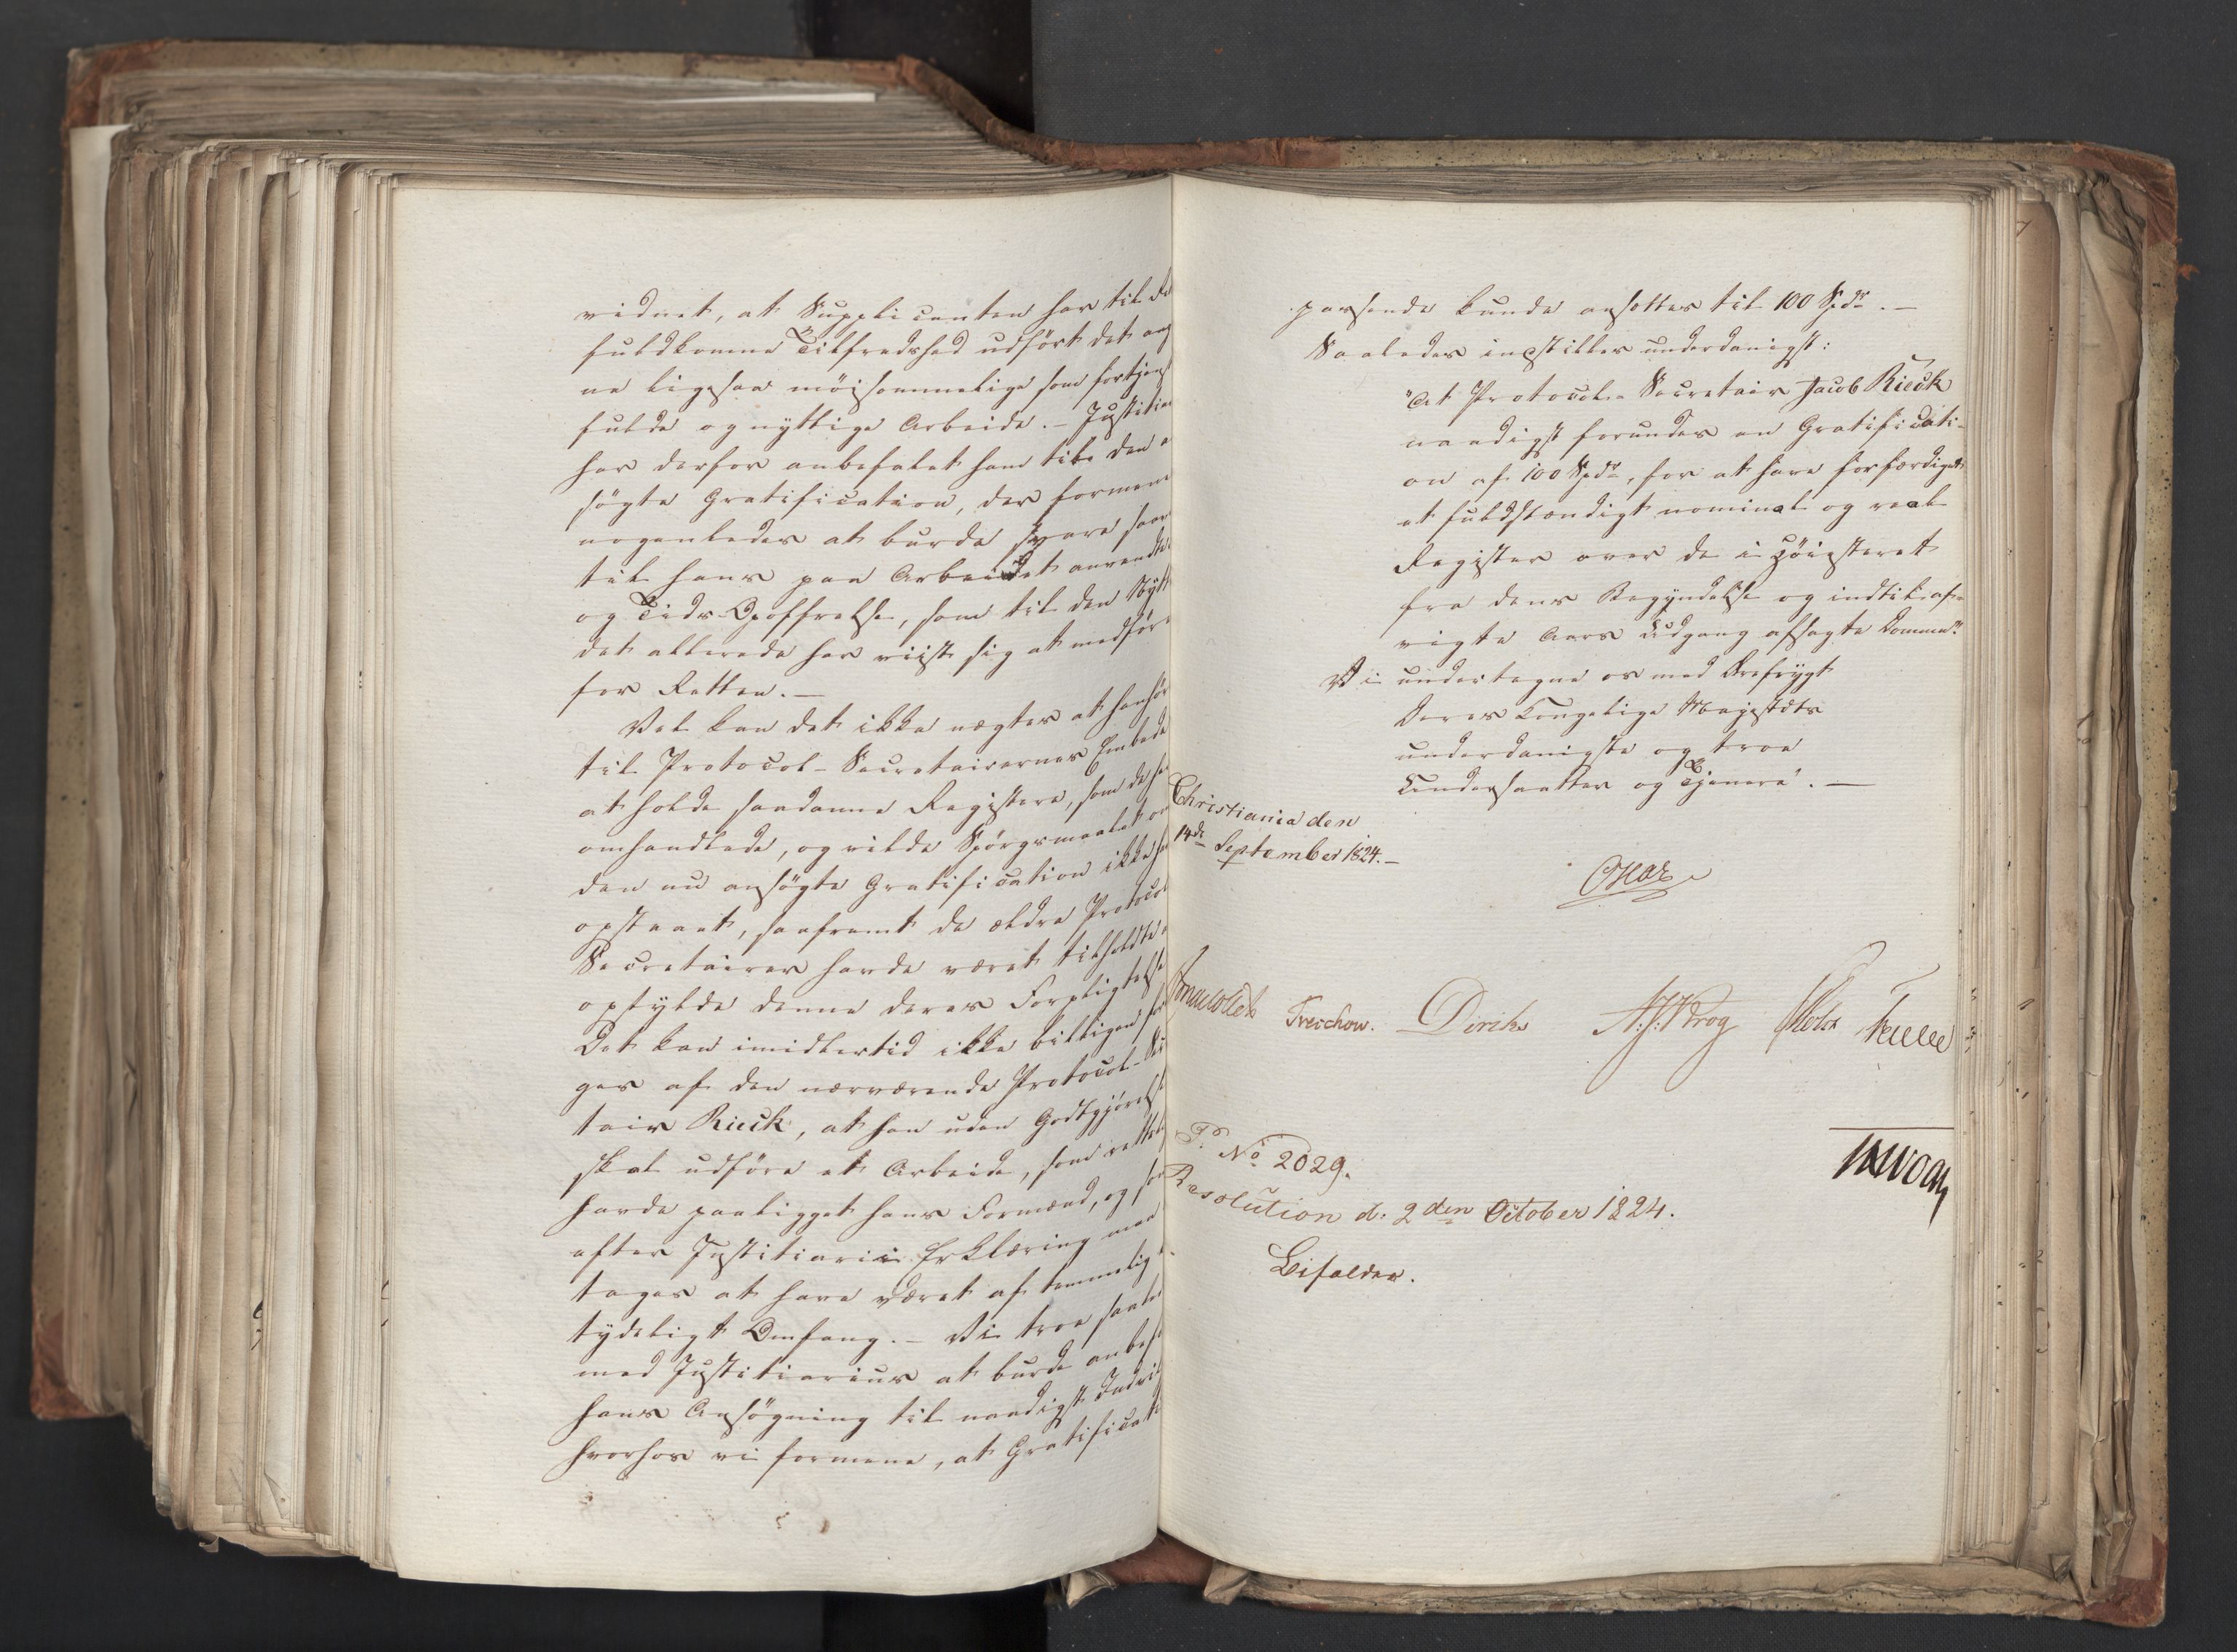 vidnet, at Supplicanten har til
fuldkomne Tilfredshed udført det
ne ligesaa møisommelige som fortjenst
fulde og nyttige Arbeide. – Justitia
har derfor anbefalet ham til den
søgte Gratification, der formene
nogenledes at burde svare
til hans paa Arbeidet anvendte
og Tids-Opoffrelse, som til den Nytte
det allerede har viist sig at medføre
for Retten. –
Vel kan det ikke nægtes at henhøre
til Protocol-Secretairernes Embede
at holde saadanne Registere, som de her
omhandlede, og vilde Spørgsmaalet om
den nu ansøgte Gratification ikke have
opstaaet, saafremt de ældre Protocol
Secretairer havde været tilholdte
opfylde denne deres Forpligtelse
Det kan imidlertid ikke billigen for
ges af den nærværende Protocol-Sec
tair Rieck, at han uden Godtgjørelse
skal udføre et Arbeide, som rettel
havde paaligget hans Formænd, og som
efter Justitiarii Erklæring maa
tages at have været af temmelig
tydeligt Omfang. – Vi troe saaledes
med Justitiarius at burde anbefale
hans Ansøgning til naadigst
hvorhos vi formene, at Gratificati
passende kunde ansættes til 100 Spdr. –
Saaledes indstilles underdanigst:
"At Protocol-Secretair Jacob Rieck
naadigst forundes en Gratificati-
on af 100 Spdr, for at have forfærdiget
et fuldstændigt nominal og real
Register over de i Høiesteret
fra dens Begyndelse og indtil af-
vigte Aars Udgang afsagte Domme."
Vi undertegne os med Ærefrygt
Deres Kongelige Majestæts
underdanigste og troe
Undersaatter og Tjenere. –
Christiania den
14de September 1824. –
Oscar
Treschow. Diriks A. J. Krog
P. No 2029.
Resolution d. 2den October 1824.
Bifaldes.